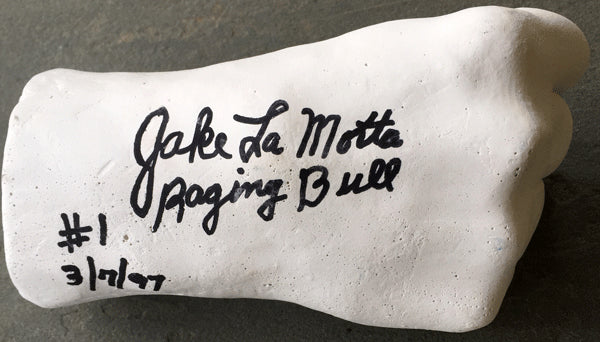 Jake La Motta
Raging Bull
#1
3/7/97